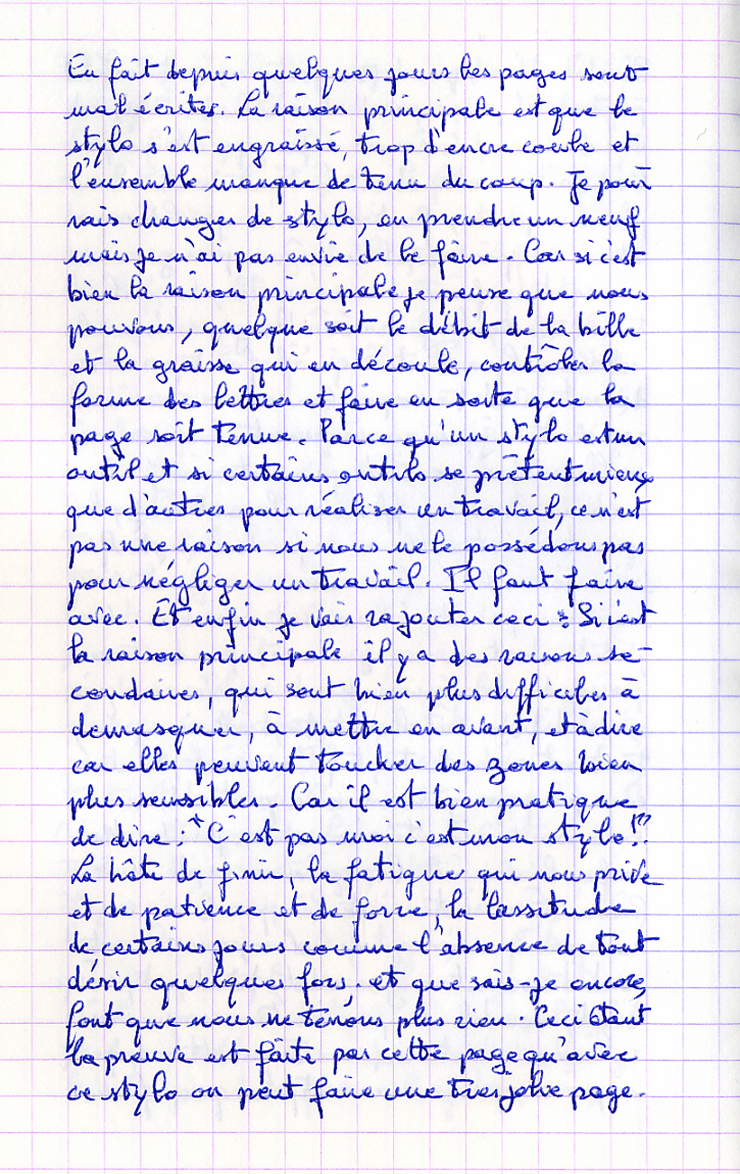 En fait depuis quelques jours les pages sont
mal écrites. La raison principale est que le
stylo s'est engraissé, trop d'encre coule et
l'ensemble manque de tenu du coup. Je pour
rais changer de stylo, en prendre un neuf
mais je n'ai pas envie de le faire. Car si c'est
bien la raison principale je pense que nous
pouvons, quelque soit le débit de la bille
et la graisse qui en découle, contrôler la
forme des lettres et faire en sorte que la
page soit tenue. Parce qu'un stylo est un
outil et si certains outils se prêtent mieux
que d'autres pour réaliser un travail, ce n'est
pas une raison si nous ne le possédons pas
pour négliger un travail. Il faut faire
avec. Et enfin je vais rajouter ceci : Si c'est
la raison principale il y a des raisons se-
condaires, qui sont bien plus difficiles à
demasquer, à mettre en avant, et à dire
car elles peuvent toucher des zones bien
plus sensibles. Car il est bien pratique
de dire : "C'est pas moi c'est mon stylo !"
La hâte de finir, la fatigue qui nous prive
et de patience et de force, la lassitude
de certains jours comme l'absence de tout
désir quelques fois. et que sais-je encore,
font que nous ne tenons plus rien. Ceci étant
la preuve est faite par cette page qu'avec
ce stylo on peut faire une tres jolie page.